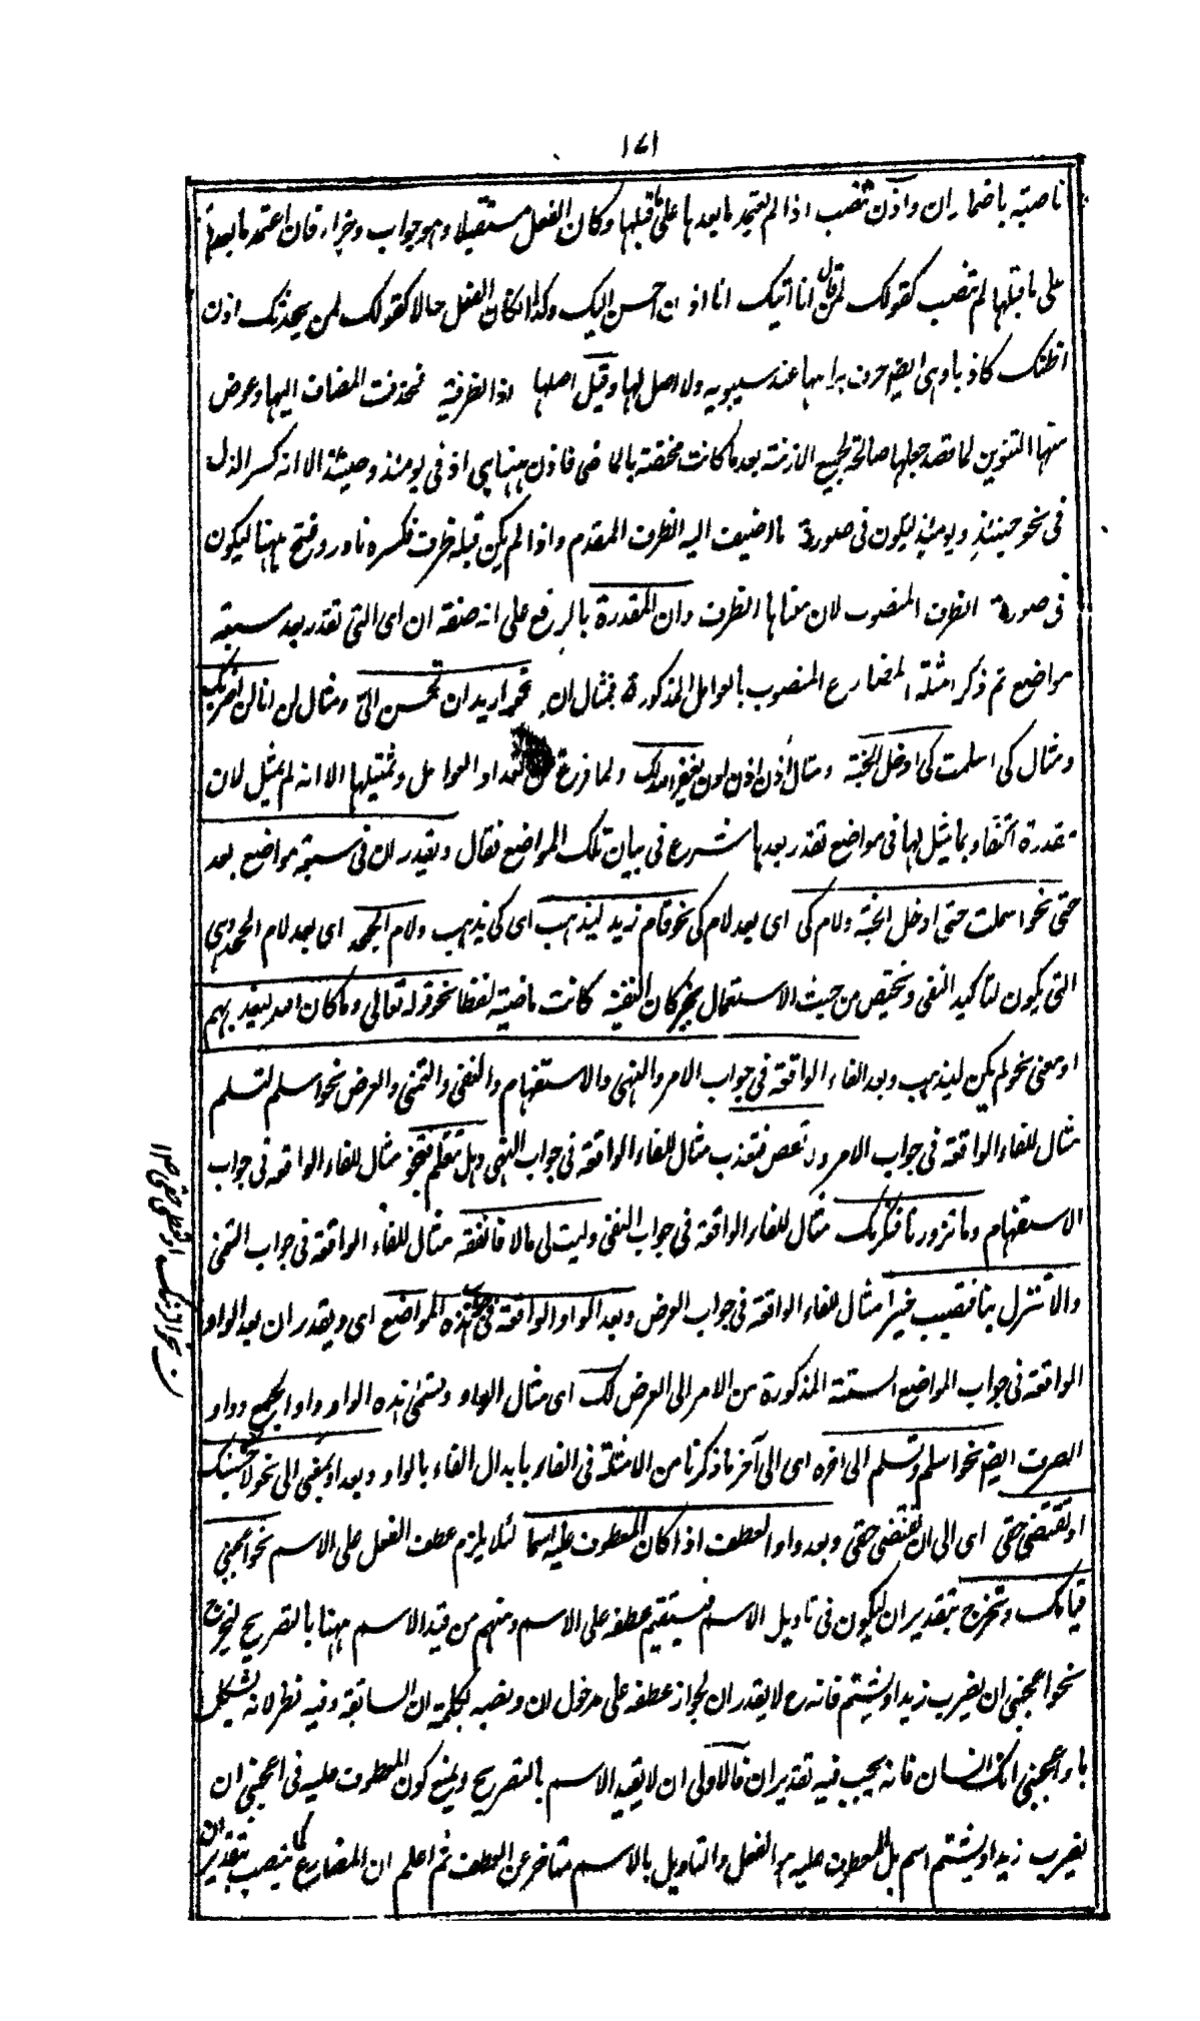 ١٧١
ناصبة باضمار ان واذن تنصب اذا لم يعتمد ما بعدها على ما قبلها وكان الفعل مستقبلا وهو جواب وجزاء فان اعتمد ما بعدها
على ما قبلها لم تنصب كقولك لمن قال انا اتيك انا اذن احسن اليك وكذا اذا كان الفعل حالا كقولك لمن يحدثك اذن
اظنك كاذبا وهى ايضا حرف برأسها عند سيبويه ولا اصل لها وقيل اصلها اذ الظرفية فحذفت المضاف اليها وعوض
منها التنوين لما قصد جعلها صالحة لجميع الازمنة بعد ما كانت مختصة بالماضى فاذن ههنا هى اذ فى يومئذ وحينئذ الا انه كسر الذال
فى نحو حينئذ ويومئذ ليكون فى صورة ما اضيف اليه الظرف المقدم واذا لم يكن قبله ظرف فكسره نادر وفتح ههنا ليكون
فى صورة الظرف المنصوب لان معناها الظرف وان المقدرة بالرفع على انه صفة ان اى التى تقدر بعد سبعة
مواضع ثم ذكر امثلة المضارع المنصوب بالعوامل المذكورة فمثال ان نحو اريد ان تحسن الىّ ومثال لن انا لن اضربك
ومثال كى اسلمت كى ادخل الجنة ومثال اذن اذن يغفر الله لك ولما فرغ عن تعداد العوامل وتمثيلها الا انه لم يمثل لان
مقدرة اكتفاء بما يمثل لها فى مواضع تقدر بعدها شرع فى بيان تلك المواضع فقال ويقدر ان فى سبعة مواضع بعد
حتى نحو اسلمت حتى ادخل الجنة ولام كى اى بعد لام كى نحو قام زيد ليذهب اى كى يذهب ولام الجحد اى بعد لام الجحد وهى
التى يكون لتاكيد النفى ويختص من حيث الاستعمال بخبر كان المنفية كانت ماضية لفظا نحو قوله تعالى وما كان الله ليعذبهم
او معنى نحو لم يكن ليذهب وبعد الفاء الواقعة فى جواب الامر والنهى والاستفهام والنفى والتمنى والعرض نحو اسلم فتسلم
مثال للفاء الواقعة فى جواب الامر ولا تعص فتعذب مثال للفاء الواقعة فى جواب النهى وهل تعلم فتنجو مثال للفاء الواقعة فى جواب
الاستفهام وما تزورنا فنكرمك مثال للفاء الواقعة فى جواب النفى وليت لى مالا فانفقه مثال للفاء الواقعة فى جواب التمنى
والا تنزل بنا فتصيب خيرا مثال للفاء الواقعة فى جواب العرض وبعد الواو الواقعة فى جواب هذه المواضع اى ويقدر ان بعد الواو
الواقعة فى جواب المواضع الستة المذكورة من الامر الى العرض كذلك اى مثال الواو ويسمى هذه الواو واو الجمع وواو
الصرف ايضا نحو اسلم وتسلم الى اخره اى الى آخر ما ذكرنا من الامثلة فى الفاء بابدال الفاء بالواو وبعد او بمعنى الى نحو لاحبسنك
او تقتضى حقى اى الى ان تقتضى حقى وبعد واو العطف اذا كان المعطوف عليه اسما لئلا يلزم عطف الفعل على الاسم نحو اعجبنى
قيامك وتخرج بتقدير ان ليكون فى تاويل الاسم فيستقيم عطفه على الاسم ومنهم من قيد الاسم ههنا بالتصريح ليخرج
نحو اعجبنى ان يضرب زيد او يشتم فانه ح لا يقدر ان لجواز عطفه على مدخول ان ونصبه بكلمة ان السابقة وفيه نظر لانه يشكل
باعجبنى انك انسان فانه يجب فيه تقدير ان فالاولى ان لا يقيد الاسم بالتصريح ويمنع كون المعطوف عليه فى اعجبنى ان
يضرب زيد او يشتم اسم بل المعطوف عليه هو الفعل والتاويل بالاسم متاخر عن العطف ثم اعلم ان المضارع كما ينصب بتقدير ان